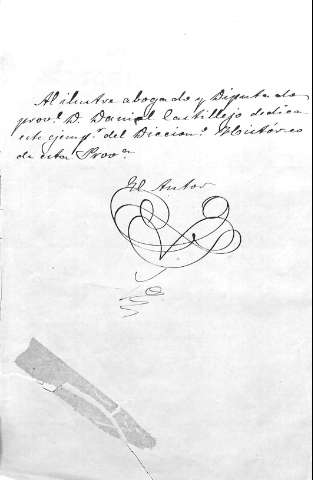 Al ilustre abogado y Diputado
prov.l D. Daniel Castillejo dedica
este ejemp.r del Diccion.o Histórico
de esta Prov.a
El Autor